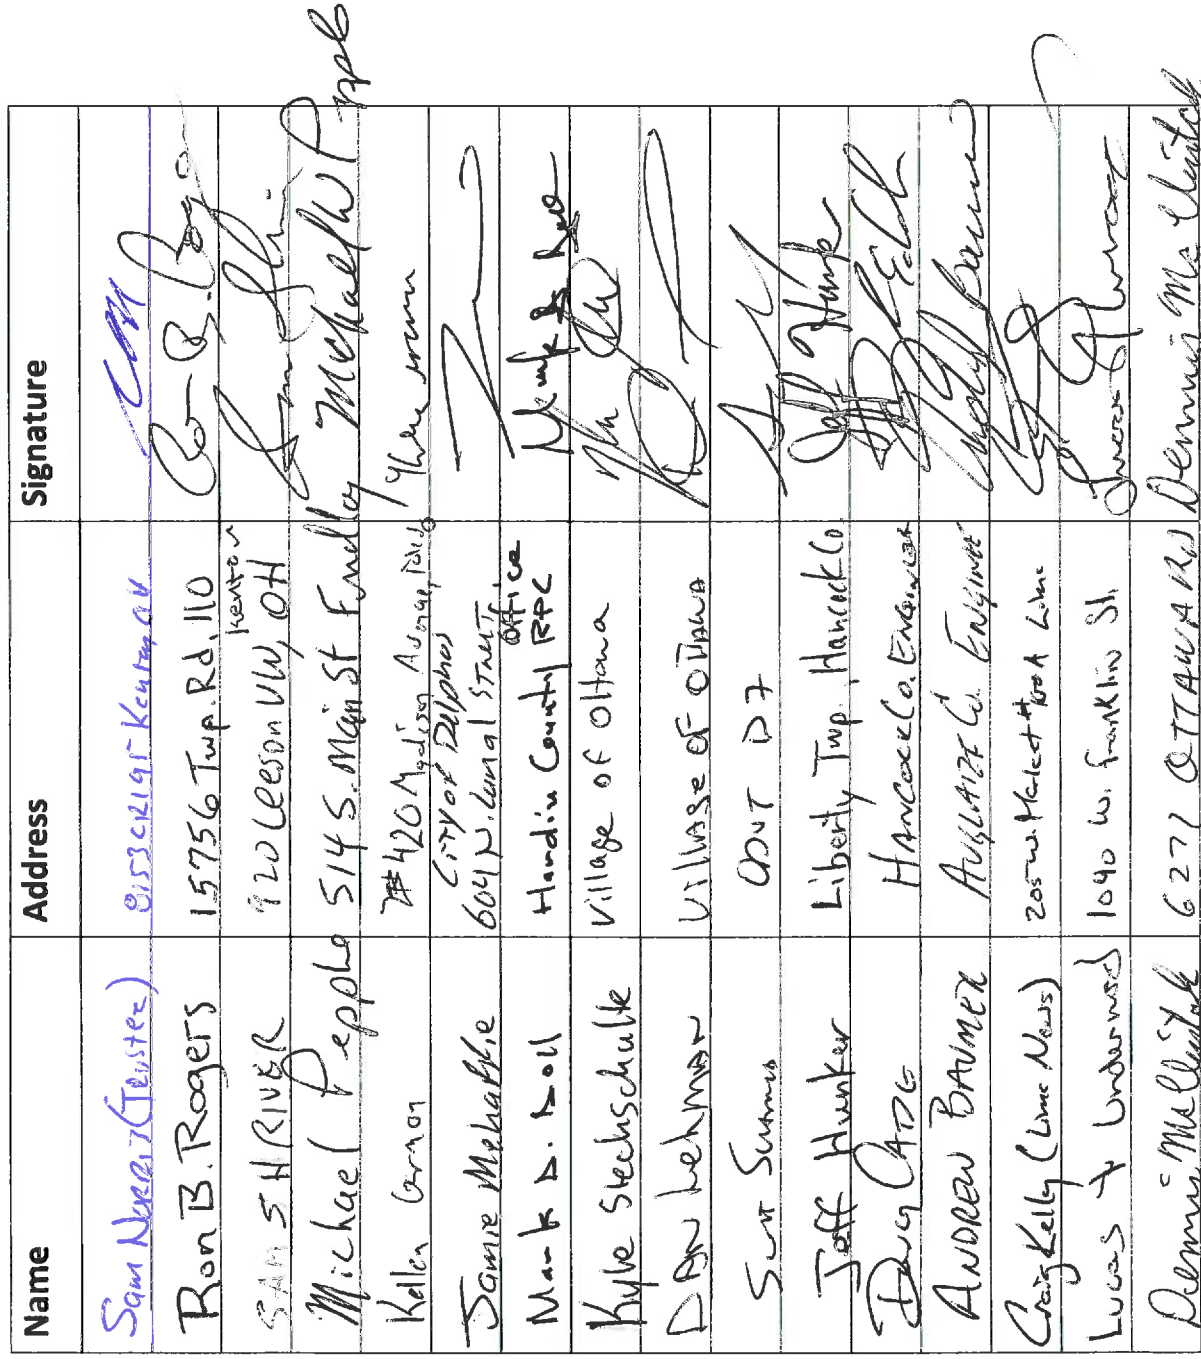 Name Address Signature
Sam (Trustee) Kenton, OH
Ron B. Rogers 15756 Twp. Rd. 110 Ron B. Rogers
SAM SHRIVER 920 Leeson VW, Kenton OH
Michael Pepple 514 S. Main St Findlay Michael W Pepple
Kellen 420 Madison Avenue, Toledo
Jamie Mehaffie City of Delphos
604 N. Canal Street
Mark D. Doll Hardin County RPC Office Mark D. Doll
Kyle Stechschulte Village of Ottawa
DAN Lehman Village of Ottawa
Scott ODOT D7
Jeff Hunker Liberty Twp. Hancock Co Jeff Hunker
Doug CADE HANCOCK Co. Engineer
ANDREW BAUMER AUGLAIZE Co. ENGINEER
Craig Kelly (Lima News) 205 W. Market Lima
Lucas Underwood 1040 W. Franklin St.
Dennis McClintock 6277 OTTAWA RD Dennis McClintock